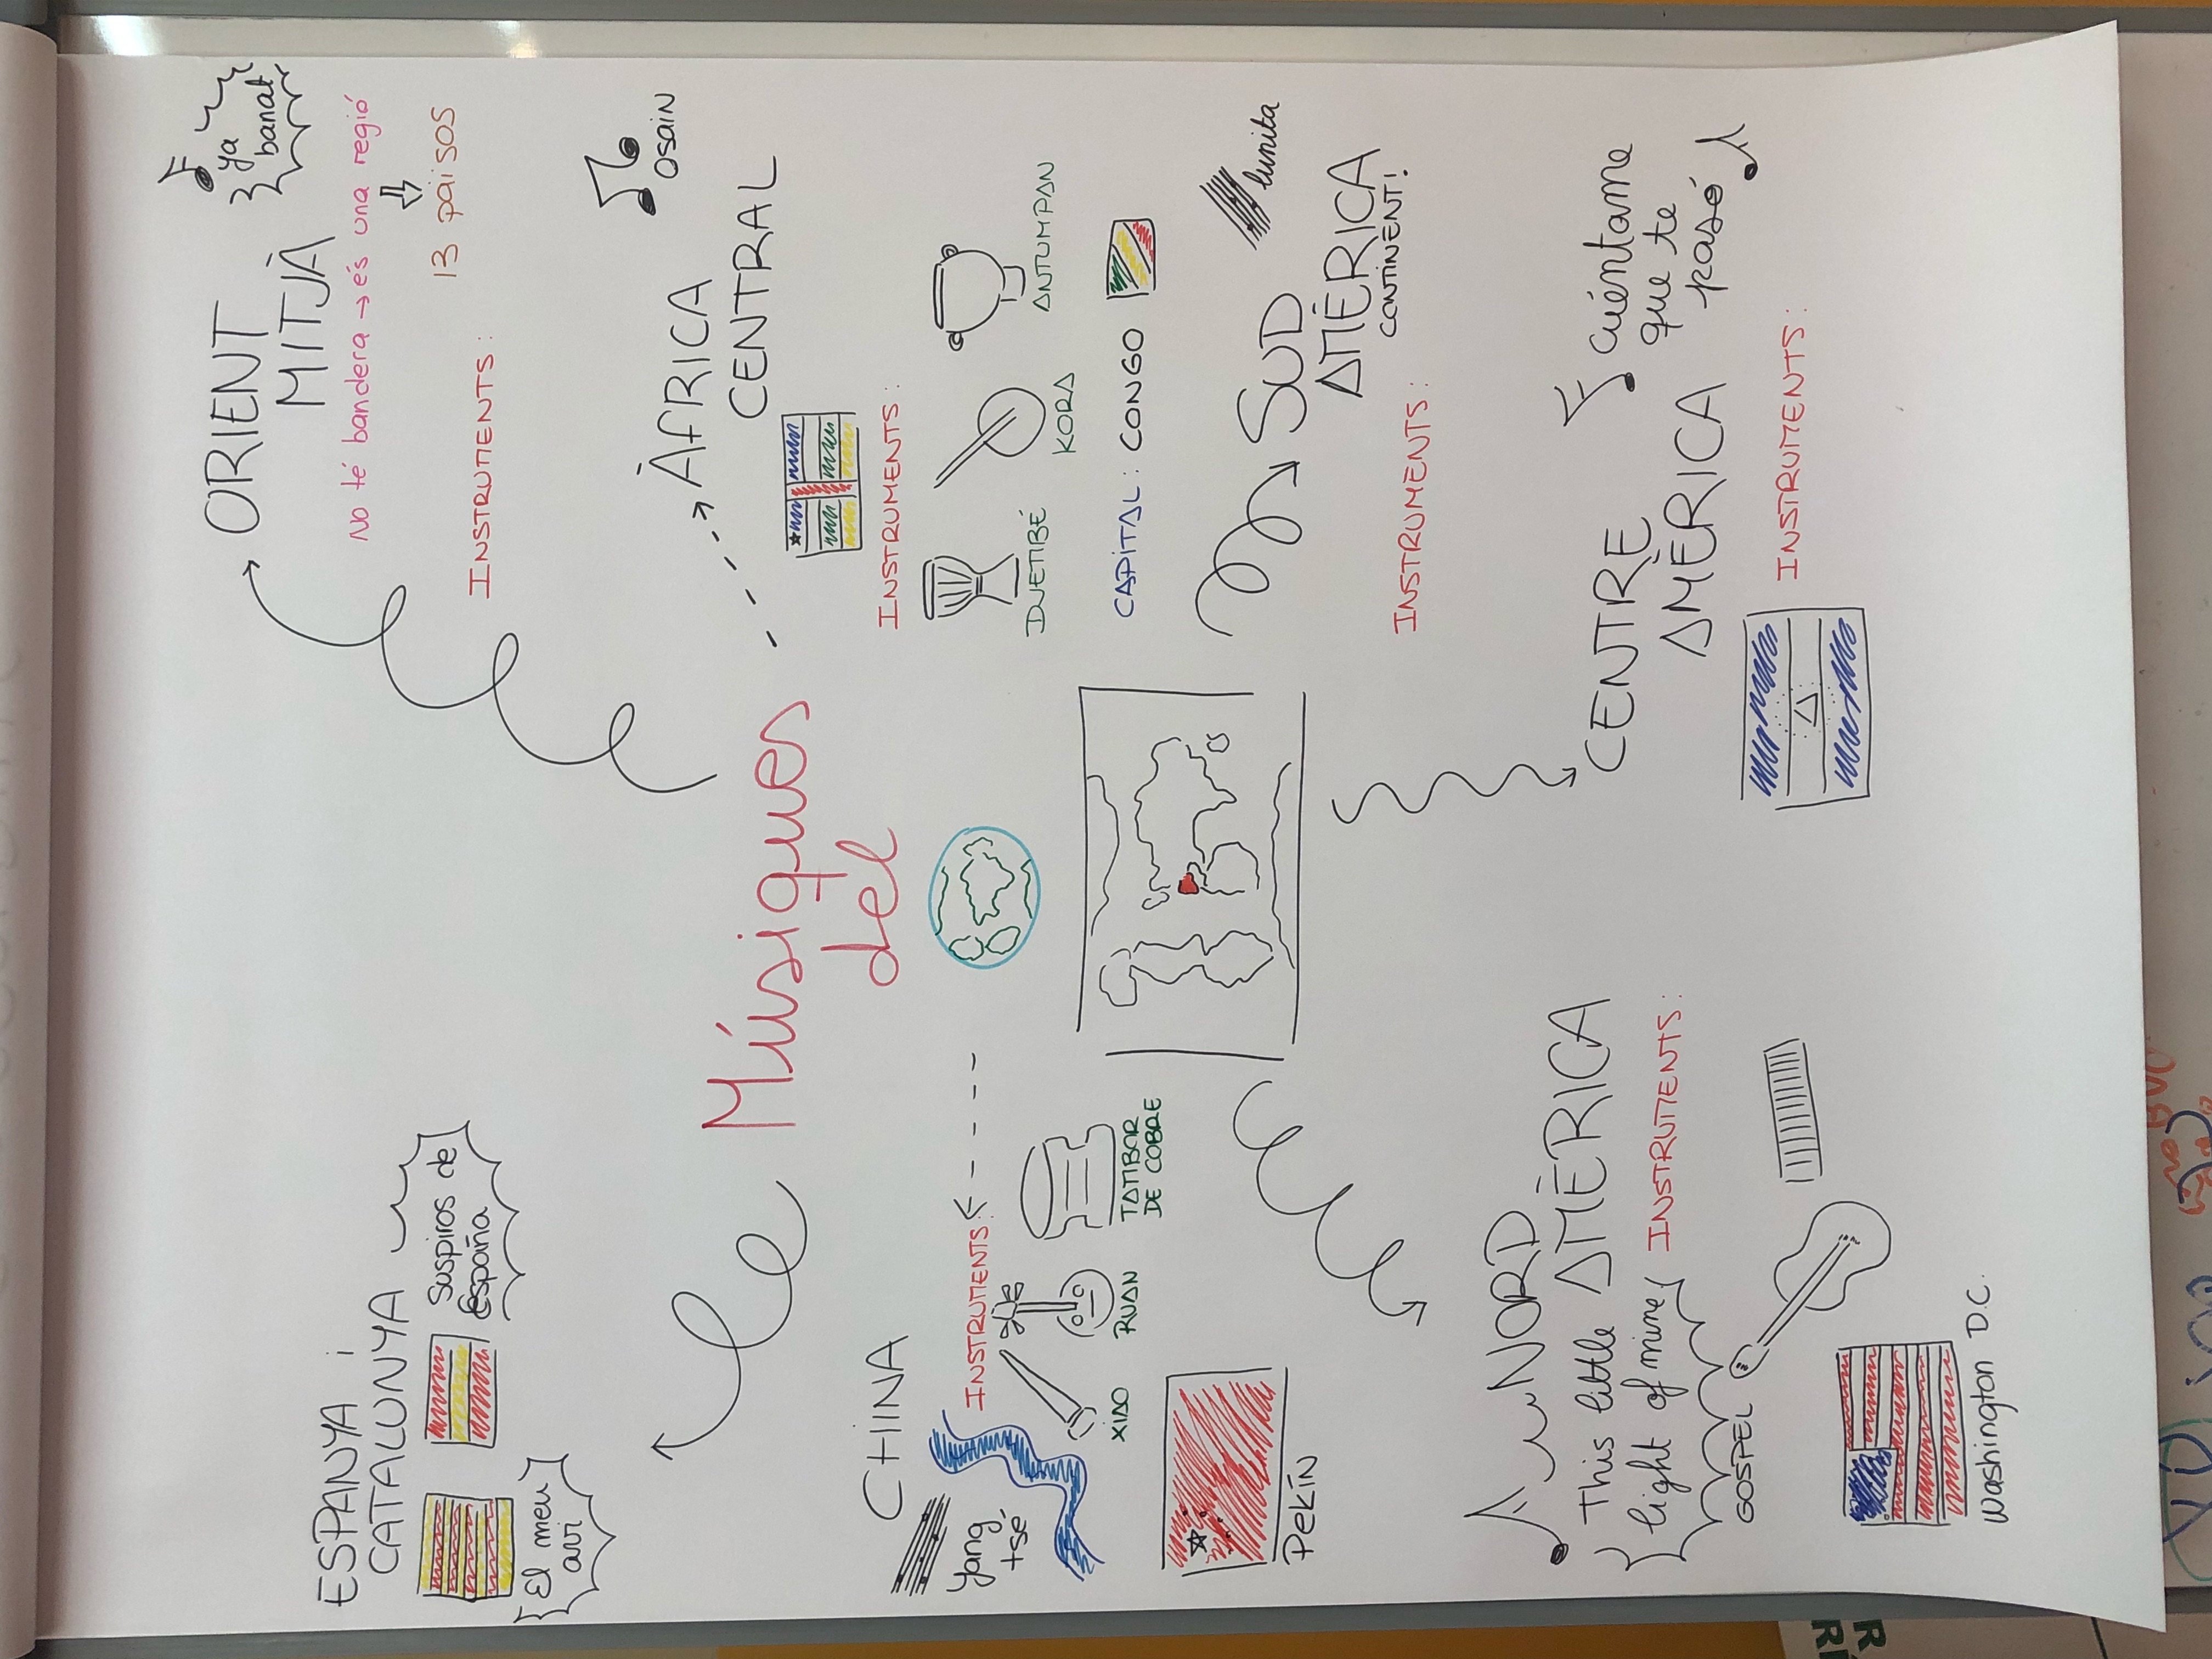 Músiques
del
ESPANYA i
CATALUNYA
Suspiros de
España
El meu
avi
CHINA
Yang
tsé
INSTRUMENTS:
XIAO
RUAN
TAMBOR
DE COBRE
Pekín
NORD
AMÈRICA
This little
light of mine
GOSPEL
INSTRUMENTS:
Washington D.C.
ORIENT
MITJÀ
ya
banat
No té bandera → és una regió
⇩
13 països
INSTRUMENTS:
ÀFRICA
CENTRAL
Osain
INSTRUMENTS:
DJEMBÉ
KORA
ANTUMPAN
CAPITAL: CONGO
SUD
AMÈRICA
CONTINENT!
lunita
INSTRUMENTS:
CENTRE
AMÈRICA
Cuéntame
que te
pasó
INSTRUMENTS: